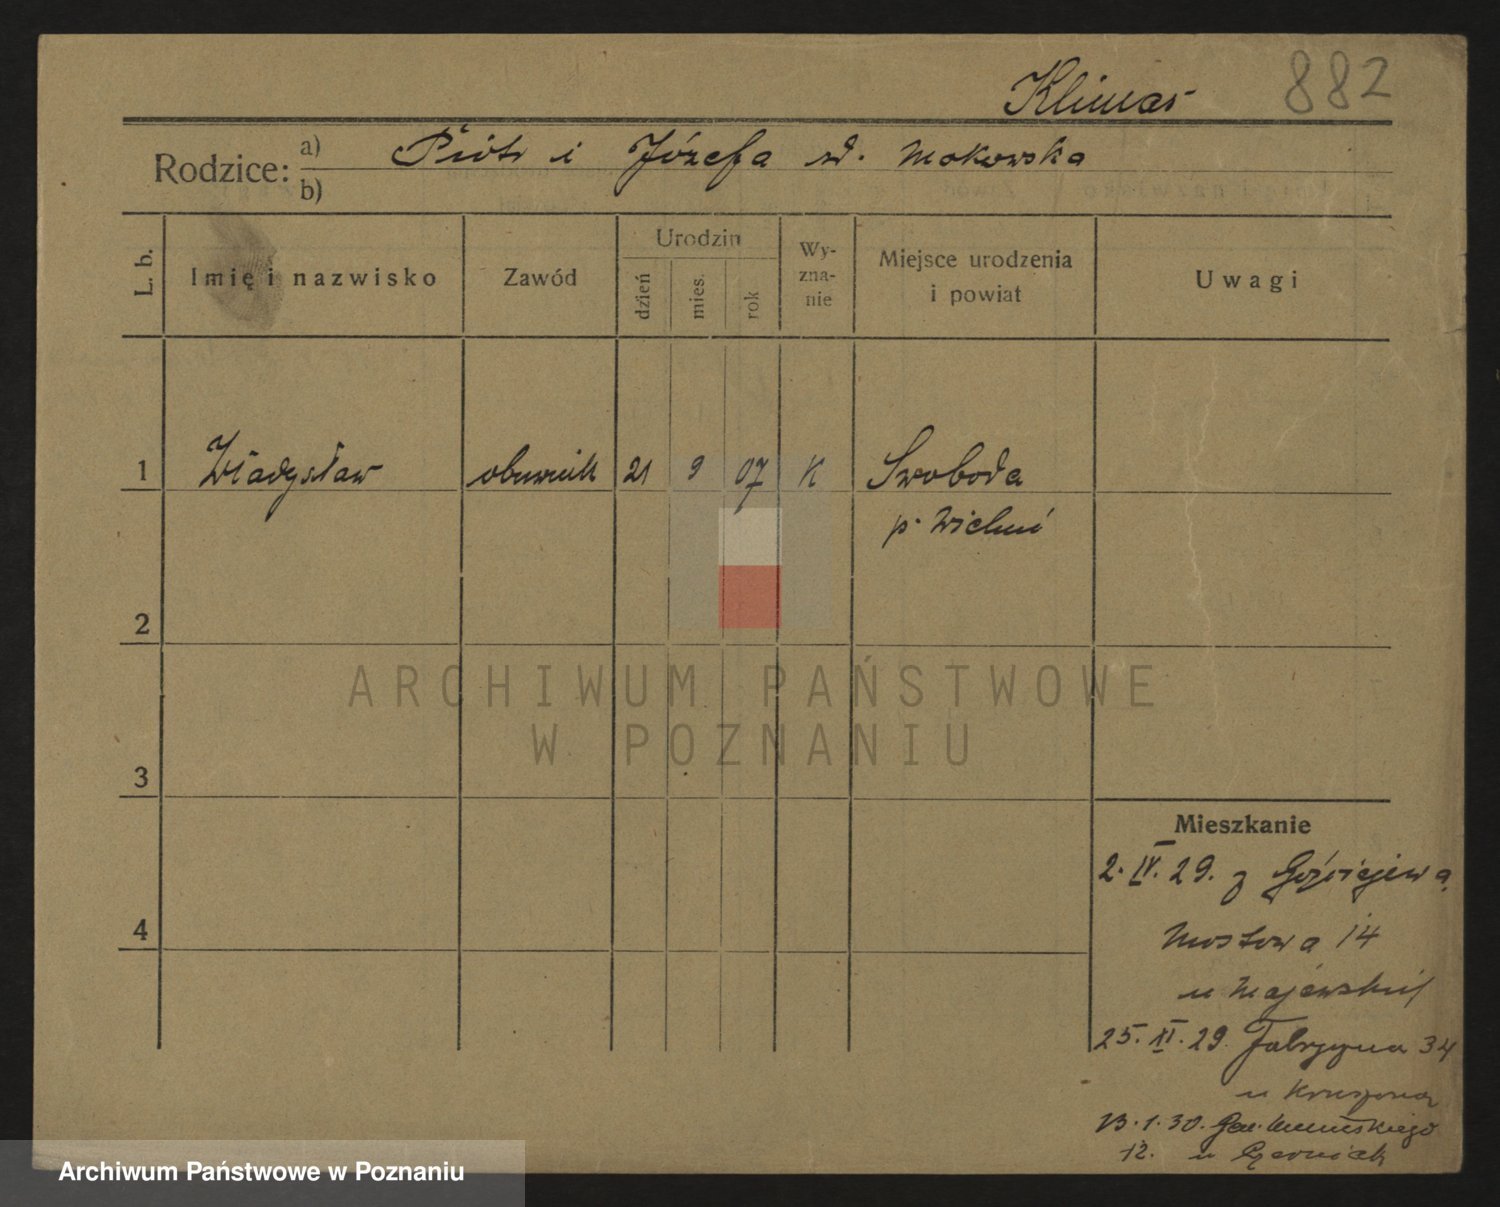 Klimas 882
Rodzice: a) Piotr i Józefa zd. Makowska
b)
L. b. Imię i nazwisko Zawód Urodzin dzień mies. rok Wy-zna-nie Miejsce urodzenia i powiat Uwagi
1 Władysław obuwnik 21 9 07 K Swoboda
p.
2
3
4
Mieszkanie
2. IV. 29. z
Mostowa 14
u
25. XI. 29. Fabryczna 34
u
13. 1. 30. Gen.
12. u
ARCHIWUM PAŃSTWOWE
W POZNANIU
Archiwum Państwowe w Poznaniu